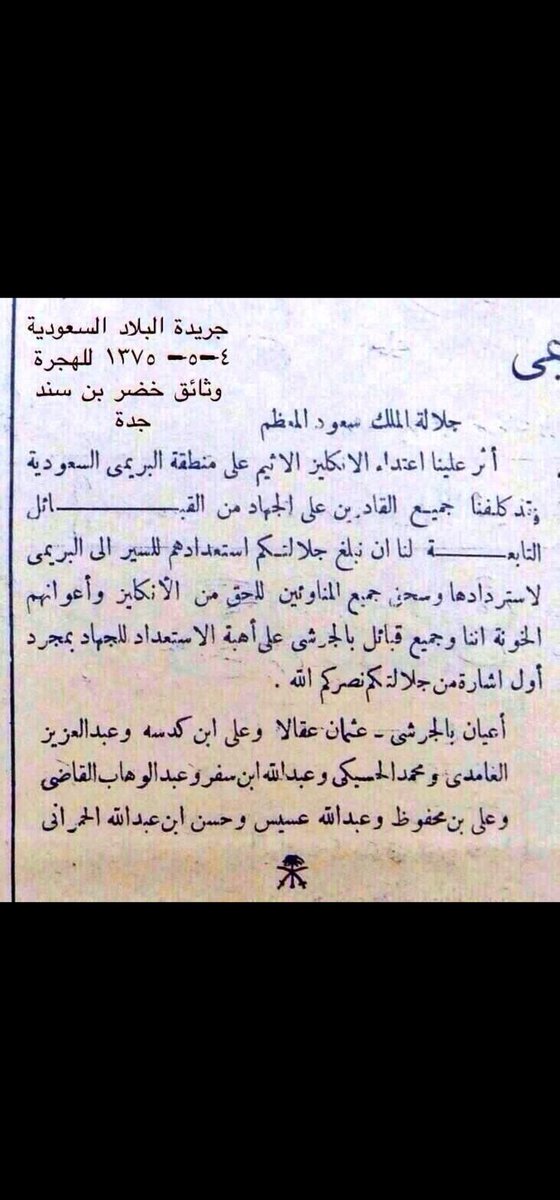 جريدة البلاد السعودية
٤-٥- ١٣٧٥ للهجرة
وثائق خضر بن سند
جدة
جلالة الملك سعود المعظم
أثر علينا اعتداء الانكليز الاثيم على منطقة البريمى السعودية
وقد كلفنا جميع القادرين على الجهاد من القبــــــائل
التابعــــــة لنا ان نبلغ جلالتكم استعدادهم للسير الى البريمى
لاستردادها وسحق جميع المناوئين للحق من الأنكليز وأعوانهم
الخونة اننا وجميع قبائل بالجرشى على أهبة الاستعداد للجهاد بمجرد
أول اشارة من جلالتكم نصركم الله .
أعيان بالجرشى - عثمان عقالا وعلى ابن كدسه وعبدالعزيز
الغامدى ومحمد الحسيكى وعبدالله ابن سفر وعبدالوهاب القاضى
وعلى بن محفوظ وعبدالله عسيس وحسن ابن عبدالله الحمرانى